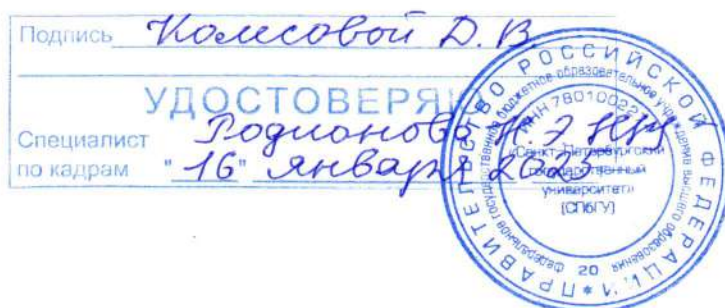 Подпись Колесовой Д. В.
УДОСТОВЕРЯЮ
Специалист Родионова
по кадрам "16" января 2023
ПРАВИТЕЛЬСТВО РОССИЙСКОЙ ФЕДЕРАЦИИ
федеральное государственное бюджетное образовательное учреждение высшего образования
«Санкт-Петербургский
государственный
университет»
(СПбГУ)
20